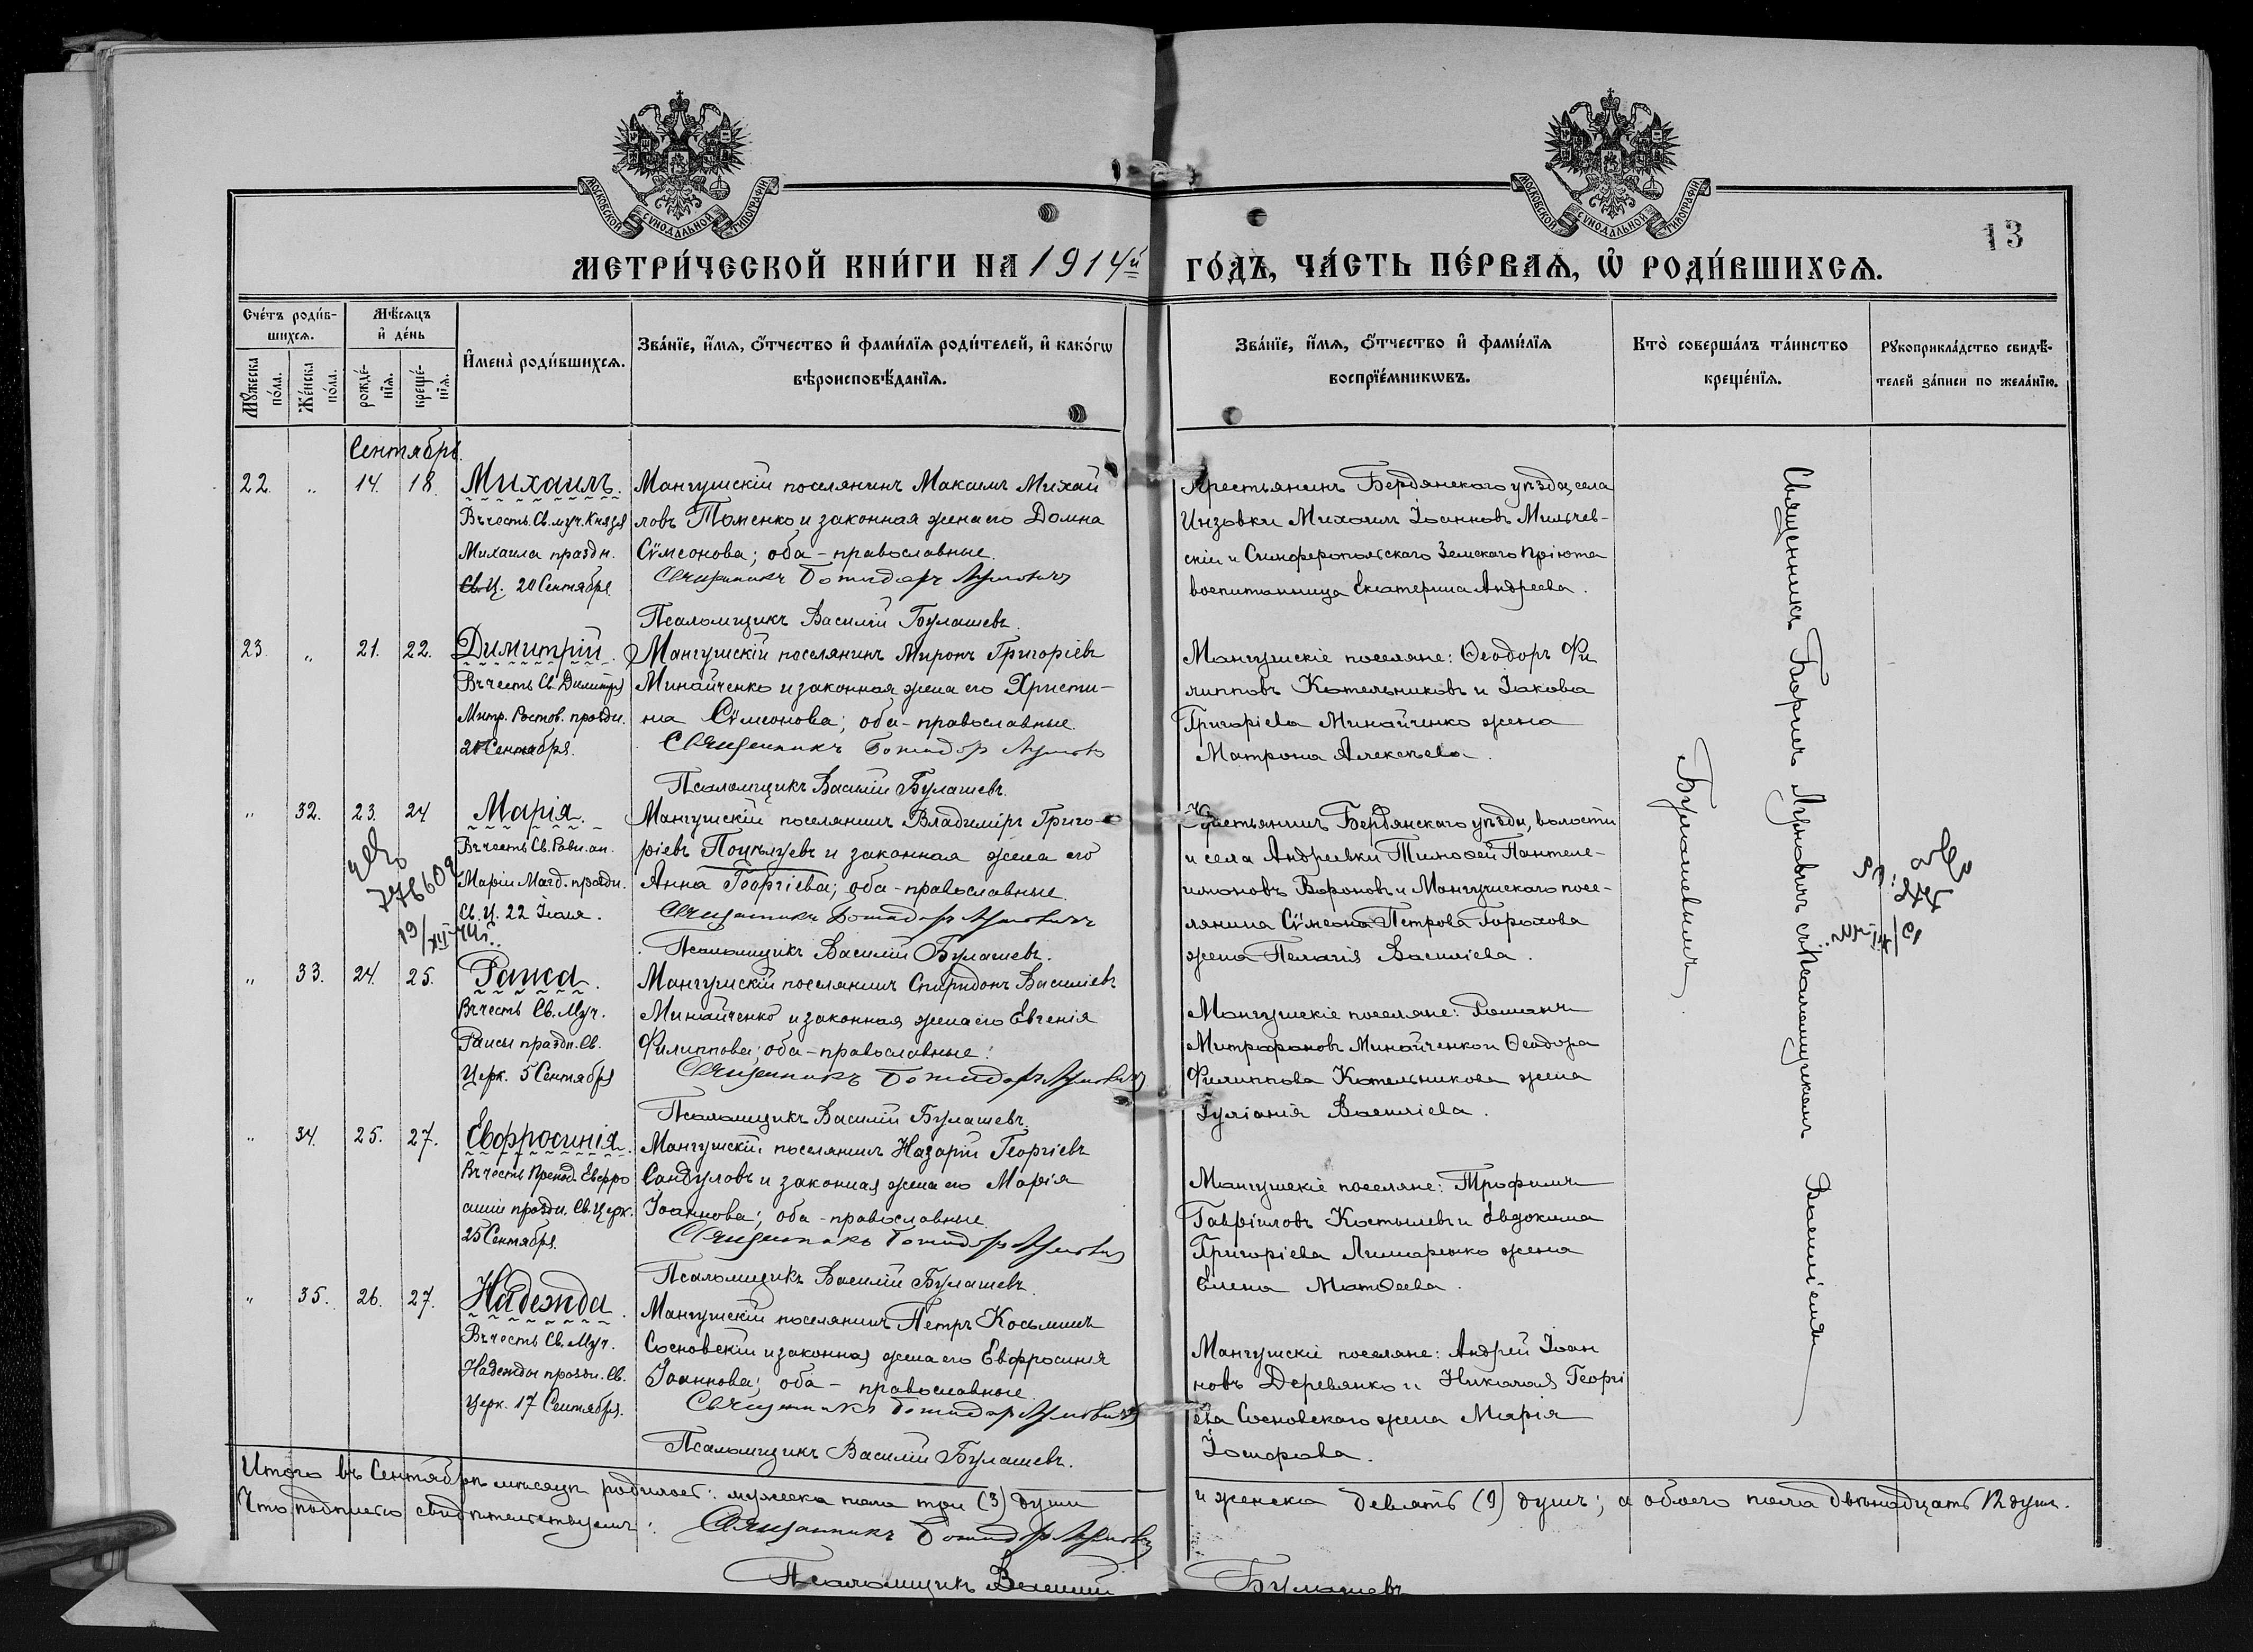 МОСКОВСКОЙ СѴНОДАЛЬНОЙ ТИПОГРАФІИ
МОСКОВСКОЙ СѴНОДАЛЬНОЙ ТИПОГРАФІИ
13
МЕТРИ́ЧЕСКОЙ КНИ́ГИ НА 1914й ГО́ДЪ, ЧА́СТЬ ПЕ́РВАѦ, Ѡ҆ РОДИ́ВШИХСѦ.
Сче́тъ роди́в-
шихсѧ.
Мѹ́жеска по́ла.
Же́нска по́ла.
Мѣ́сѧцъ
и҆ де́нь
рожде́-нїѧ.
креще́-нїѧ.
И҆мена̀ роди́вшихсѧ.
Зва́нїе, и҆́мѧ, ѻ҆́тчество и҆ фами́лїѧ роди́телей, и҆ како́гѡ
вѣроисповѣ́данїѧ.
Зва́нїе, и҆́мѧ, ѻ҆́тчество и҆ фами́лїѧ
воспрїе́мникѡвъ.
Кто̀ соверша́лъ та́инство
креще́нїѧ.
Рꙋкоприкла́дство свидѣ́-
телей за́писи по жела́нїю.
Сентябрь.
22. „ 14. 18. Михаилъ.
Въ честь Св. муч. Князя
Михаила праздн.
Св. Ц. 20 Сентября.
Мангушскій поселянинъ Максимъ Михай
ловъ Томенко и законная жена его Домна
Сѵмеонова; оба - православные.
Священникъ Божидаръ Лунович
Псаломщикъ Василій Булашевъ.
Крестьянинъ Бердянскаго уѣзда, села
Инзовки Михаилъ Іоанновъ Мильчев-
скій и Симферопольскаго Земскаго пріюта
воспитанница Екатерина Андреева.
23. „ 21. 22. Димитрій.
Въ честь Св. Димитрія
Митр. Ростов. праздн.
21 Сентября.
Мангушскій поселянинъ Миронъ Григоріевъ
Минайченко и законная жена его Христи-
на Сѵмеонова; оба - православные
Священникъ Божидар
Псаломщикъ Василій Булашевъ.
Мангушскіе поселяне: Ѳеодоръ Фи
липповъ Котельниковъ и Іакова
Григоріева Минайченко жена
Матрона Алексѣева.
„ 32. 23. 24 Марія.
Въ честь Св. Равн. ап.
Маріи Магд. праздн.
Св. Ц. 22 Іюля.
776609
19/XII 44г.
Мангушскій поселянинъ Владиміръ Григо-
ріевъ Поцѣлуевъ и законная жена его
Анна Георгіева; оба - православные.
Священникъ Божидар Лунович
Псаломщикъ Василій Булашевъ.
Крестьянинъ Бердянскаго уѣзда, волости
и села Андреевки Тимофей Пантеле-
имоновъ Вороновъ и Мангушскаго посе-
лянина Сѵмеона Петрова Горохова
жена Пелагія Василіева.
„ 33. 24. 25. Раиса.
Въ честь Св. Муч.
Раисы праздн. Св.
Церк. 5 Сентября
Мангушскій поселянинъ Спиридонъ Василіевъ
Минайченко и законная жена его Евгенія
Филиппова; оба - православные.
Священникъ Божидар Лунович
Псаломщикъ Василій Булашевъ.
Мангушскіе поселяне: Романъ
Митрофановъ Минайченко и Ѳеодора
Филиппова Котельникова жена
Іуліанія Василіева.
„ 34. 25. 27. Евфросинія.
Въ честь Препод. Евфро
синіи праздн. Св. Церк.
25 Сентября.
Мангушскій поселянинъ Назарій Георгіевъ
Сандуловъ и законная жена его Марія
Іоаннова; оба - православные.
Священникъ Божидар Лунович
Псаломщикъ Василій Булашевъ.
Мангушскіе поселяне: Трофимъ
Гавріиловъ Костылевъ и Евдокима
Григоріева Лимаренко жена
Елена Матѳеева.
„ 35. 26. 27. Надежда.
Въ честь Св. Муч.
Надежды праздн. Св.
Церк. 17 Сентября.
Мангушскій поселянинъ Петръ Косьминъ
Сосновскій и законная жена его Евфросинія
Іоаннова; оба - православные.
Священникъ Божидар Лунович
Псаломщикъ Василій Булашевъ.
Мангушскіе поселяне: Андрей Іоан
новъ Деревянко и Николая Георгі
ева Сосновскаго жена Марія
Священникъ Лунович съ псаломщикомъ Василіемъ
Булашевымъ
Итого въ Сентябрѣ мѣсяцѣ родилось: мужеска пола три (3) души
и женска девять (9) душъ; а обоего пола двѣнадцать 12 душъ.
Что подписью свидѣтельствуемъ: Священникъ Божидар Лунович
Псаломщикъ Василій Булашевъ